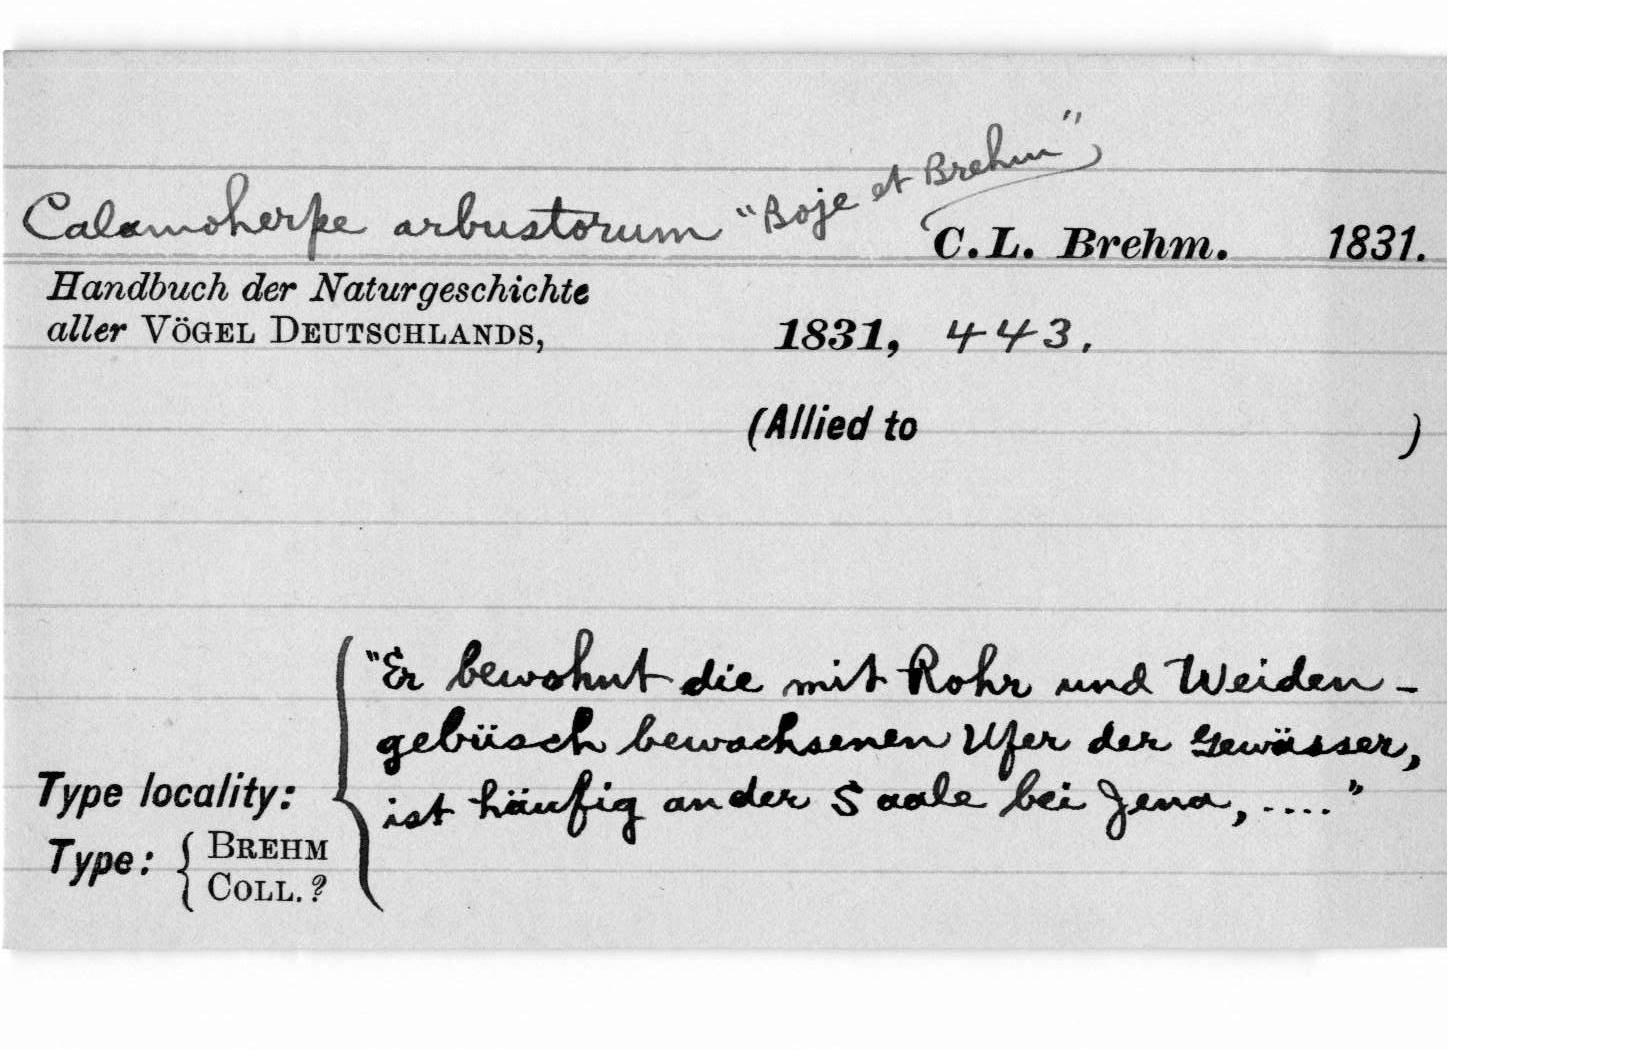 Calamoherpe arbustorum "Boje et Brehm"
C.L. Brehm. 1831.
Handbuch der Naturgeschichte
aller VÖGEL DEUTSCHLANDS, 1831, 443.
(Allied to )
"Er bewohnt die mit Rohr und Weiden-
gebüsch bewachsenen Ufer der Gewässer,
Type locality: ist häufig an der Saale bei Jena, ...."
Type: { BREHM
COLL. ?